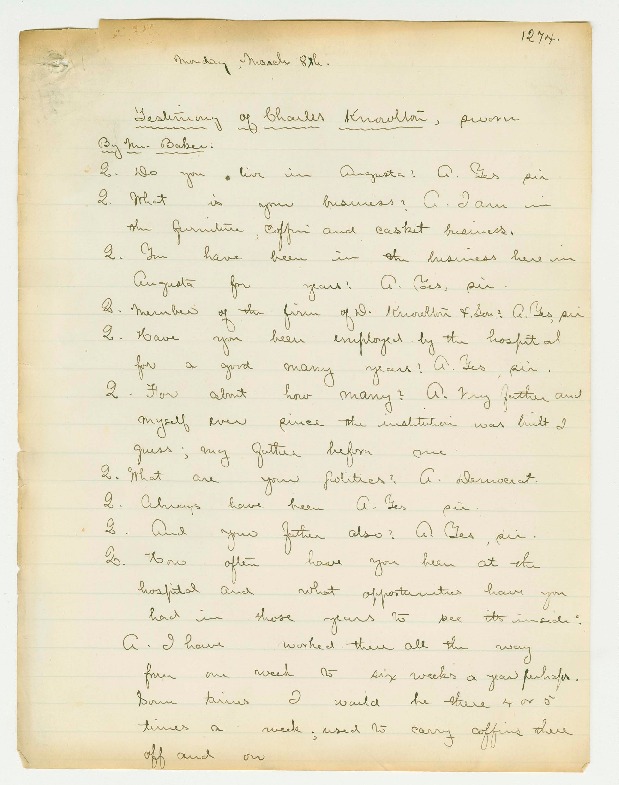 1274.
Monday, March 8th.
Testimony of Charles Knowlton, sworn
By Mr. Baker.
Q. Do you live in Augusta? A. Yes sir
Q. What is your business? A. I am in
the furniture, coffin and casket business.
Q. You have been in the business here in
Augusta for years? A. Yes, sir.
Q. Member of the firm of D. Knowlton & Son? A. Yes, sir
Q. Have you been employed by the hospital
for a good many years? A. Yes, sir.
Q. For about how many? A. My father and
myself ever since the institution was built I
guess; my father before me
Q. What are your politics? A. Democrat.
Q. Always have been A. Yes sir.
Q. And your father also? A. Yes, sir.
Q. How often have you been at the
hospital and what opportunities have you
had in those years to see its inside?
A. I have worked there all the way
from one week to six weeks a year perhaps.
Some times I would be there 4 or 5
times a week; used to carry coffins there
off and on